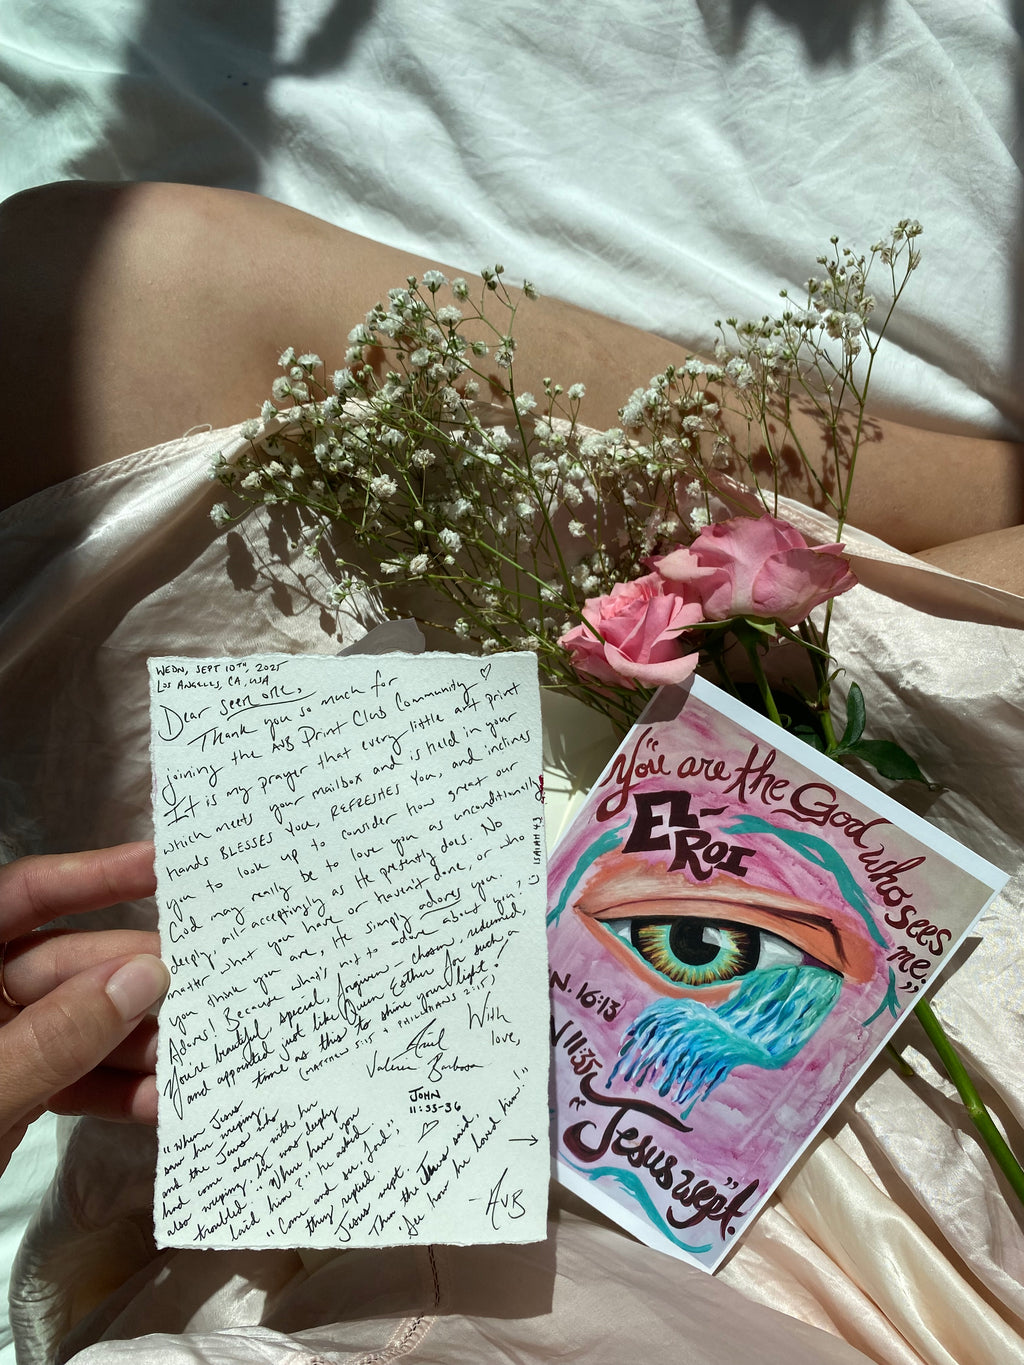 WEDN, SEPT 10TH, 2025
LOS ANGELES, CA, USA
Dear seen one,
Thank you so much for
joining the AVB Print Club Community ♡
It is my prayer that every little art print
which meets your mailbox and is held in your
hands BLESSES YOU, REFRESHES YOU, and inclines
you to look up to consider how great our
God may really be to love you as unconditionally,
deeply, all-acceptingly as He presently does. No
matter what you have or haven't done, or who
you think you are, He simply adores you.
Adores! Because what's not to adore about you? :)
You're beautiful, special, forgiven - chosen, redeemed,
and appointed just like Queen Esther for such a
time as this to shine your light!
(MATTHEW 5:15 + PHILIPPIANS 2:15)
ISAIAH 43
With
love,
Valeria Barbosa
JOHN
11:33-36
♡
"When Jesus
saw her weeping,
and the Jews who
had come along with her
also weeping, he was deeply
troubled. "Where have you
laid him?" he asked.
"Come and see, Lord",
they replied.
Jesus wept.
Then the Jews said,
'See how he loved him!"
→
- AVB
"You are the God who sees me,"
EL-
ROI
N. 16:13
N 11:35
"Jesus wept."